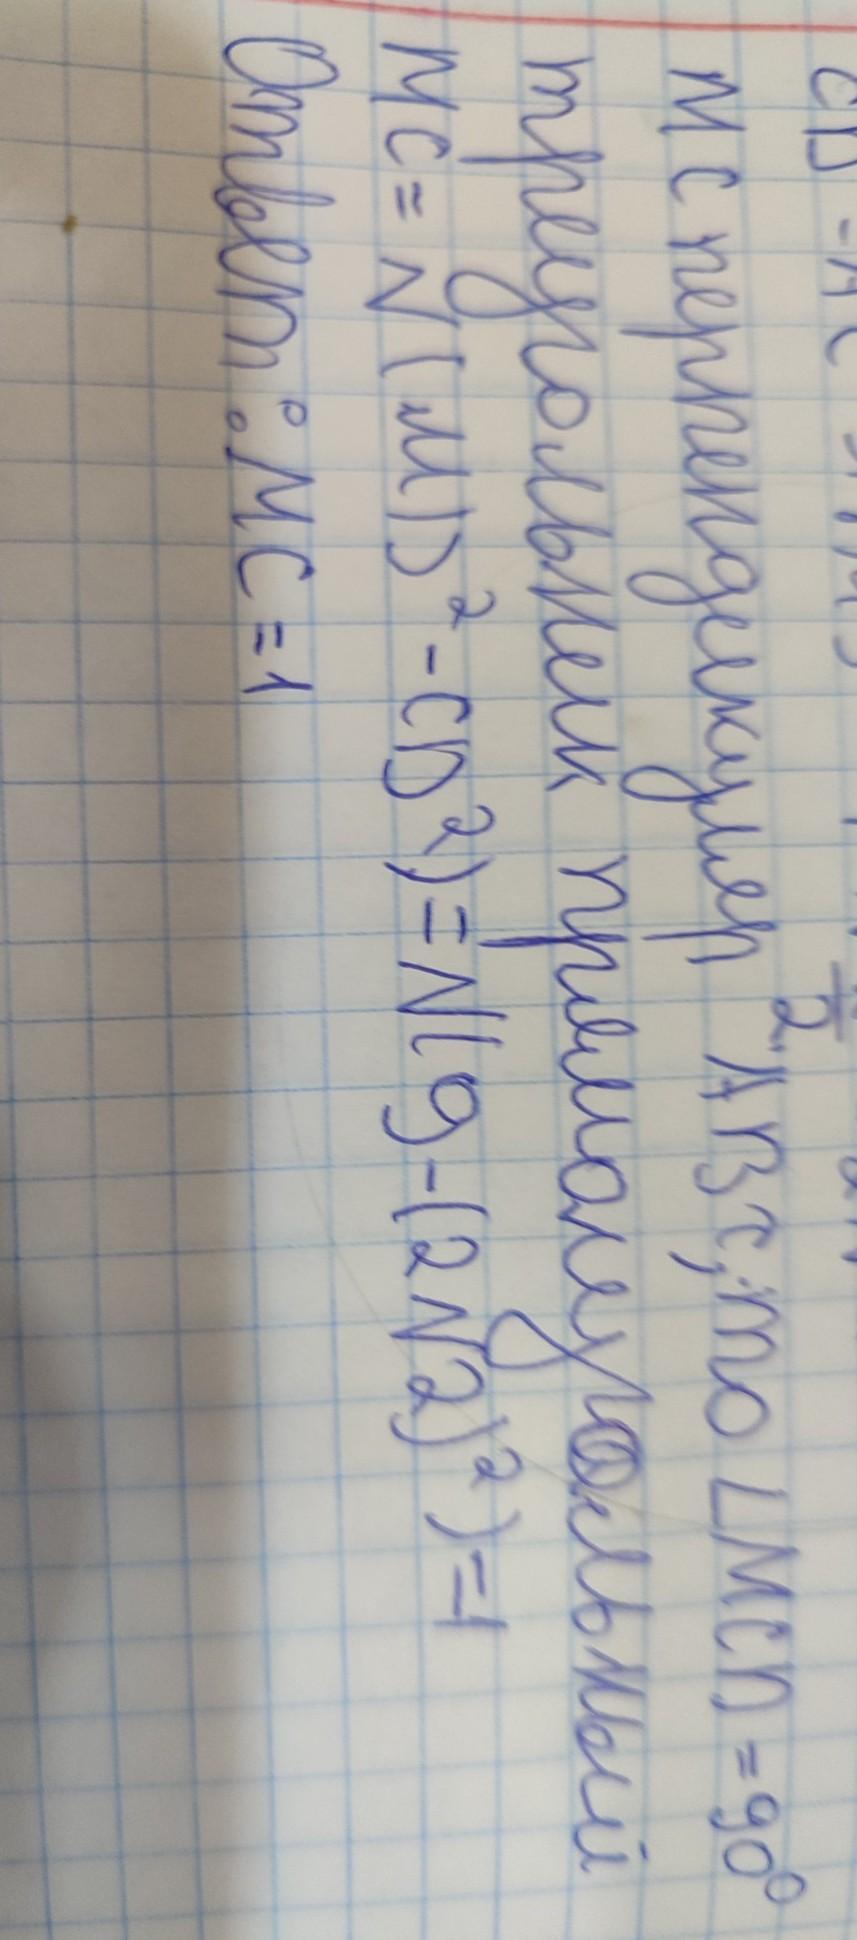 CD = AC
МС перпендикуляр ABC, то ∠MCD = 90°
треугольник прямоугольный
MC = √(MD² - CD²) = √(9 - (2√2)²) = 1
Ответ: MC = 1